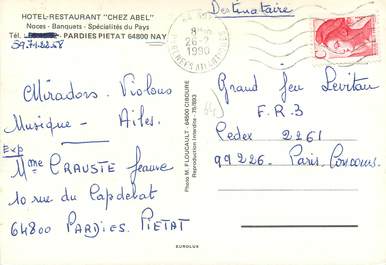 HOTEL-RESTAURANT "CHEZ ABEL"
Noces - Banquets - Spécialités du Pays
Tél. - PARDIES PIETAT 64800 NAY
59.71.22.58
Miradors. Violons
Musique - Ailes.
Exp
Mme CRAUSTE Jeanne
10 rue du Capdebat
64800 PARDIES. PIETAT
Photo M. FLOUCAULT - 64500 CIBOURE
Reproduction Interdite - 75/693
EUROLUX
Destinataire
26-2
1990
PYRENEES ATLANTIQUES
Grand Jeu Levitan
F.R.3
Cedex 2261
99226. Paris. Concours.